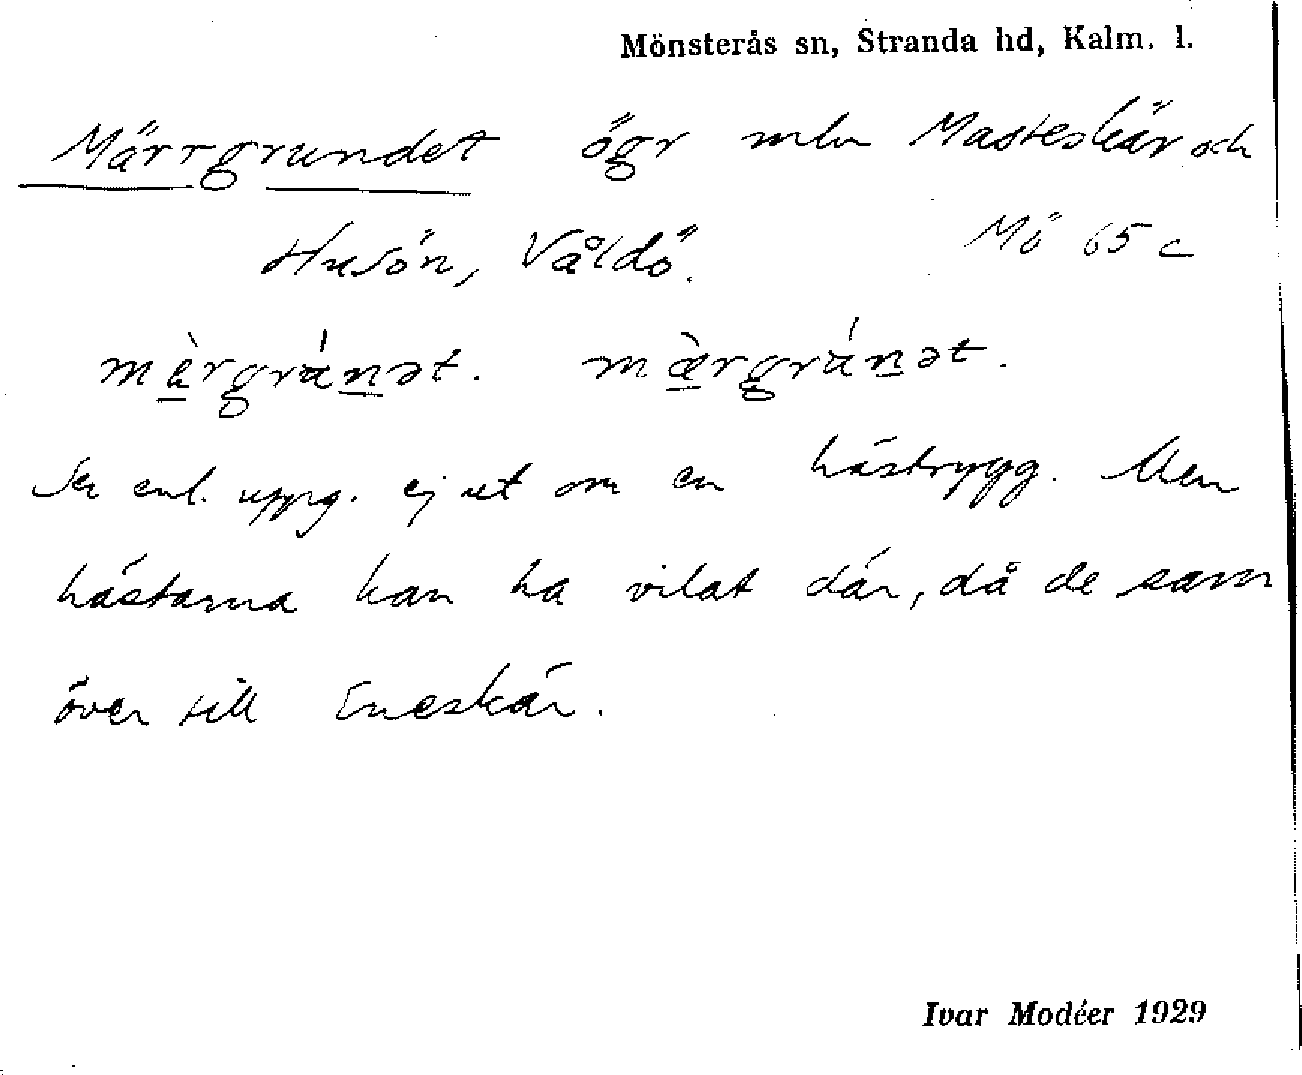 Mönsterås sn, Stranda hd, Kalm. l.
Märrgrundet ögr mln Masteskär och
Husön, Våldö. Mö 65 c
mèrgránət. mæ̀rgránət.
Ser enl. uppg. ej ut om en hästrygg. Men
hästarna kan ha vilat där, då de sam
över till Eneskär.
Ivar Modéer 1929